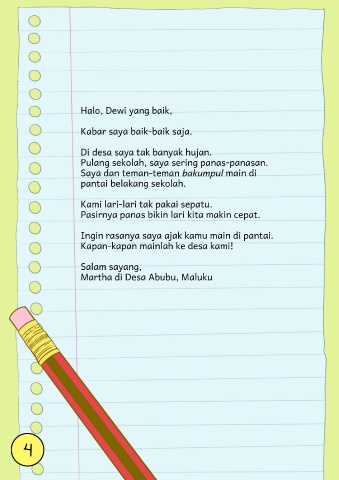 Halo, Dewi yang baik,
Kabar saya baik-baik saja.
Di desa saya tak banyak hujan.
Pulang sekolah, saya sering panas-panasan.
Saya dan teman-teman bakumpul main di
pantai belakang sekolah.
Kami lari-lari tak pakai sepatu.
Pasirnya panas bikin lari kita makin cepat.
Ingin rasanya saya ajak kamu main di pantai.
Kapan-kapan mainlah ke desa kami!
Salam sayang,
Martha di Desa Abubu, Maluku
4